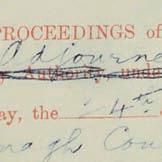 PROCEEDINGS of
Adjourne
Authority, unde
ay, the 24th
nagh Cou